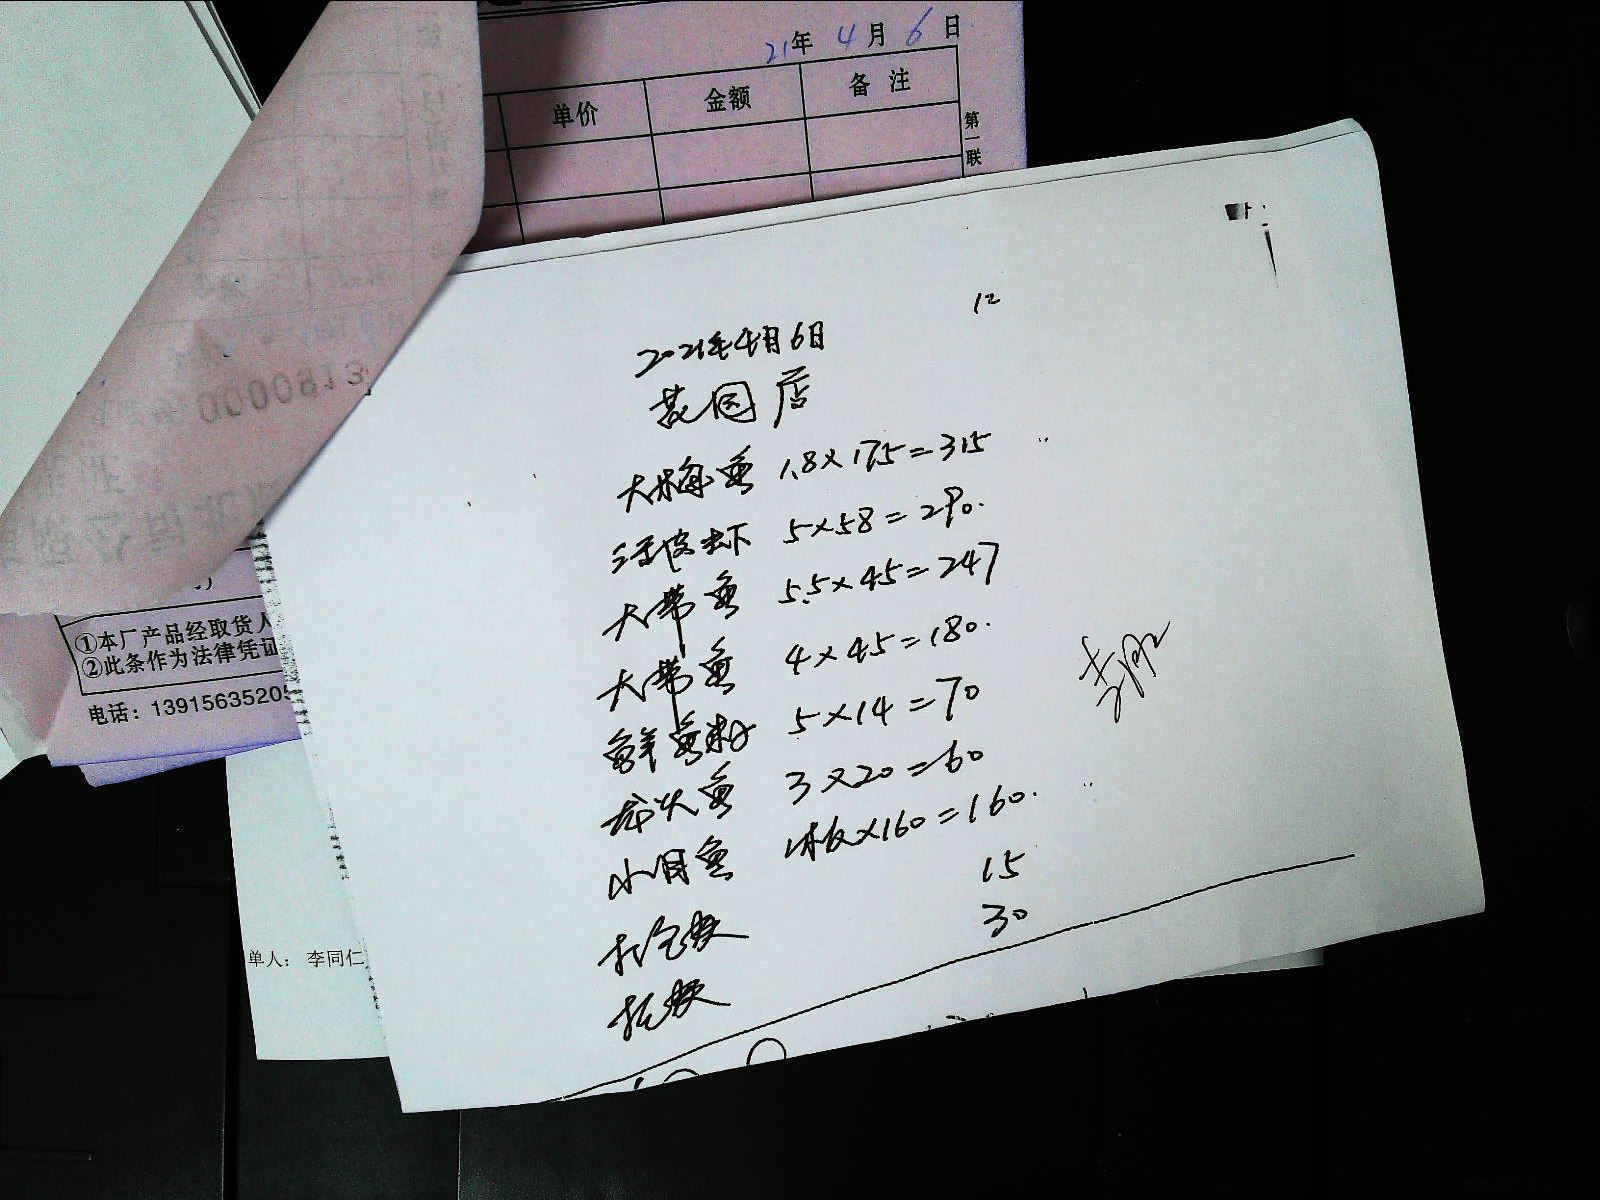 21年 4月 6日
单价 金额 备注
第一联
12
2021年4月6日
花园店
大梅鱼 1.8×175=315
活皮虾 5×58=290.
大带鱼 5.5×45=247
大带鱼 4×45=180.
鲜鱼籽 5×14=70
龙头鱼 3×20=60
小目鱼 1板×160=160.
打包费 15
托费 30
0000813
①本厂产品经取货人
②此条作为法律凭证
电话：1391563520
单人： 李同仁